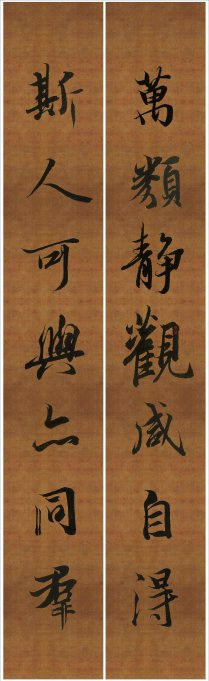 萬類靜觀咸自得
斯人可與亦同羣